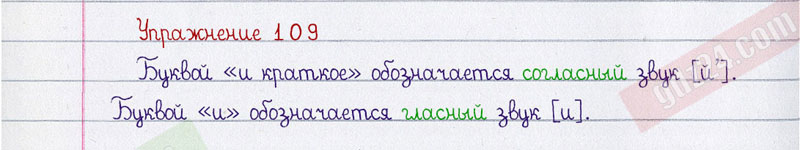 Упражнение 109
Буквой «и краткое» обозначается согласный звук [й'].
Буквой «и» обозначается гласный звук [и].